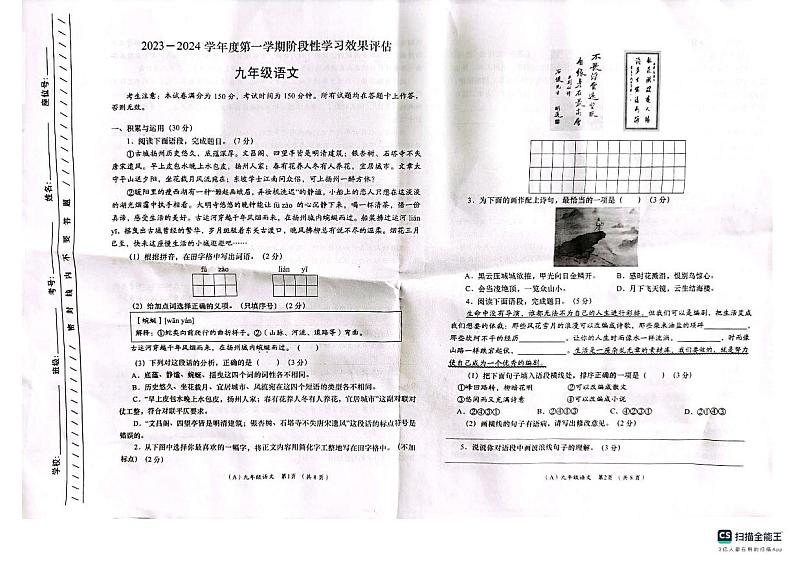 座位号：
姓名：
考号：
班级：
学校：
密封线内不要答题
2023－2024 学年度第一学期阶段性学习效果评估
九年级语文
考生注意：本试卷满分为 150 分，考试时间为 150 分钟。所有试题均在答题卡上作答，
否则无效。
一、积累与运用（30 分）
1、阅读下面语段，完成题目。（7 分）
①古城扬州历史悠久，底蕴深厚。文昌阁、四望亭皆是明清建筑；银杏树、石塔寺不失
唐宋遗风。早上皮包水晚上水包皮，扬州人家；春有花养人冬有人养花，宜居城市。文章太
守平山迎夕阳，坐花载月风流宛在；东坡学士江南问众俗，可上扬州一醉方休？
②暖阳里的瘦西湖有一种“翻起画眉眉，弄妆梳洗迟”的静谧，小船上的恋人只想在这淡淡
的湖光烟霭中执手相看。大明寺悠悠的晚钟能让 fǔ zào 的心沉静下来，喝一杯清茶，悟一份
真谛，感受生活的美好。古运河穿越千年风烟而来，在扬州城内蜿蜒而过。船桨拂过运河 lián
yī，摇曳出古城曾经的繁华，岁月斑驳着东关古渡口，晚风拂柳总有说不尽的温柔。烟花三月
已至，快来这座慢生活的小城逛逛吧……
（1）根据拼音，在田字格中写出词语。（2 分）
fǔ zào lián yī
（2）给加点词选择正确的义项。（只填序号）（2 分）
【蜿蜒】[wān yán]
解释：①蛇类向前爬行的曲折样子。②（山脉、河流、道路等）弯曲。
古运河穿越千年风烟而来，在扬州城内蜿蜒而过。（ ）
（3）下列对这段话的分析，正确的是（ ）（3 分）
A．底蕴、静谧、蜿蜒、摇曳这四个词的词性各不相同。
B．历史悠久、坐花载月、宜居城市、风流宛在这四个短语的类型各不相同。
C．“早上皮包水晚上水包皮，扬州人家；春有花养人冬有人养花，宜居城市”这副对联对
仗工整，符合对联平仄要求。
D．“文昌阁、四望亭皆是明清建筑；银杏树、石塔寺不失唐宋遗风”这段话的标点符号是
错误的。
2．从下图中选择你最喜欢的一幅字，将正文内容用简化字工整地写在田字格中。（不加
标点）（2 分）
（A）九年级语文 第1页（共 8 页）
不畏浮云遮望眼
自缘身在最高层
3、为下面的画作配上诗句，最恰当的一项是（ ）（3 分）
A．黑云压城城欲摧，甲光向日金鳞开。 B．感时花溅泪，恨别鸟惊心。
C．会当凌绝顶，一览众山小。 D．月下飞天镜，云生结海楼。
4．阅读下面语段，完成题目。（5 分）
生命中没有导演，谁都无法不为自己的人生进行彩排。但我们可以是编剧，把生活变成
我们想要的体裁；那些风花雪月的浪漫可以改编成诗歌，那些柴米油盐的琐碎
那些坎坷不平的经历 ，让你的人生时而像水一样流淌， ，时而像
山路一样跌宕起伏， 。生活是一座杂乱荒芜的素材库，我们要做的，就是努力
使自己成为一个优秀的编剧。
（1）把下面句子填入语段横线处，排序正确的一项是（ ）（3 分）
①峰回路转，柳暗花明 ②可以改编成散文
③悠闲而又充满诗意 ④可以改编成小说
A．②④③① B．②④①③ C．④②③① D．④②①③
（2）画横线的句子有语病，请写出修改意见。（2 分）
5．说说你对语段中画波浪线句子的理解。（3 分）
（A）九年级语文 第2页（共 8 页）
CS 扫描全能王
3亿人都在用的扫描App